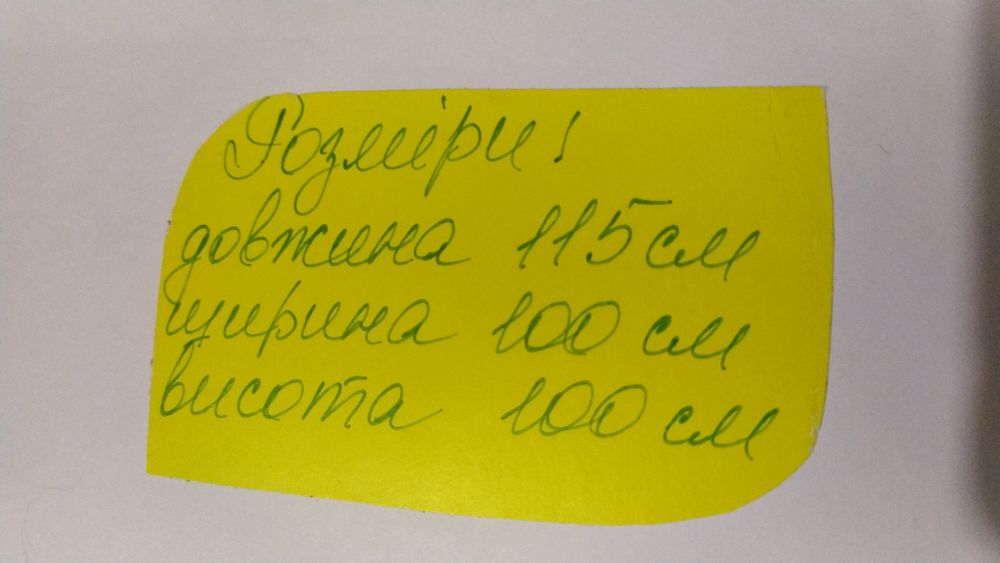 Розміри!
довжина 115 см
ширина 100 см
висота 100 см